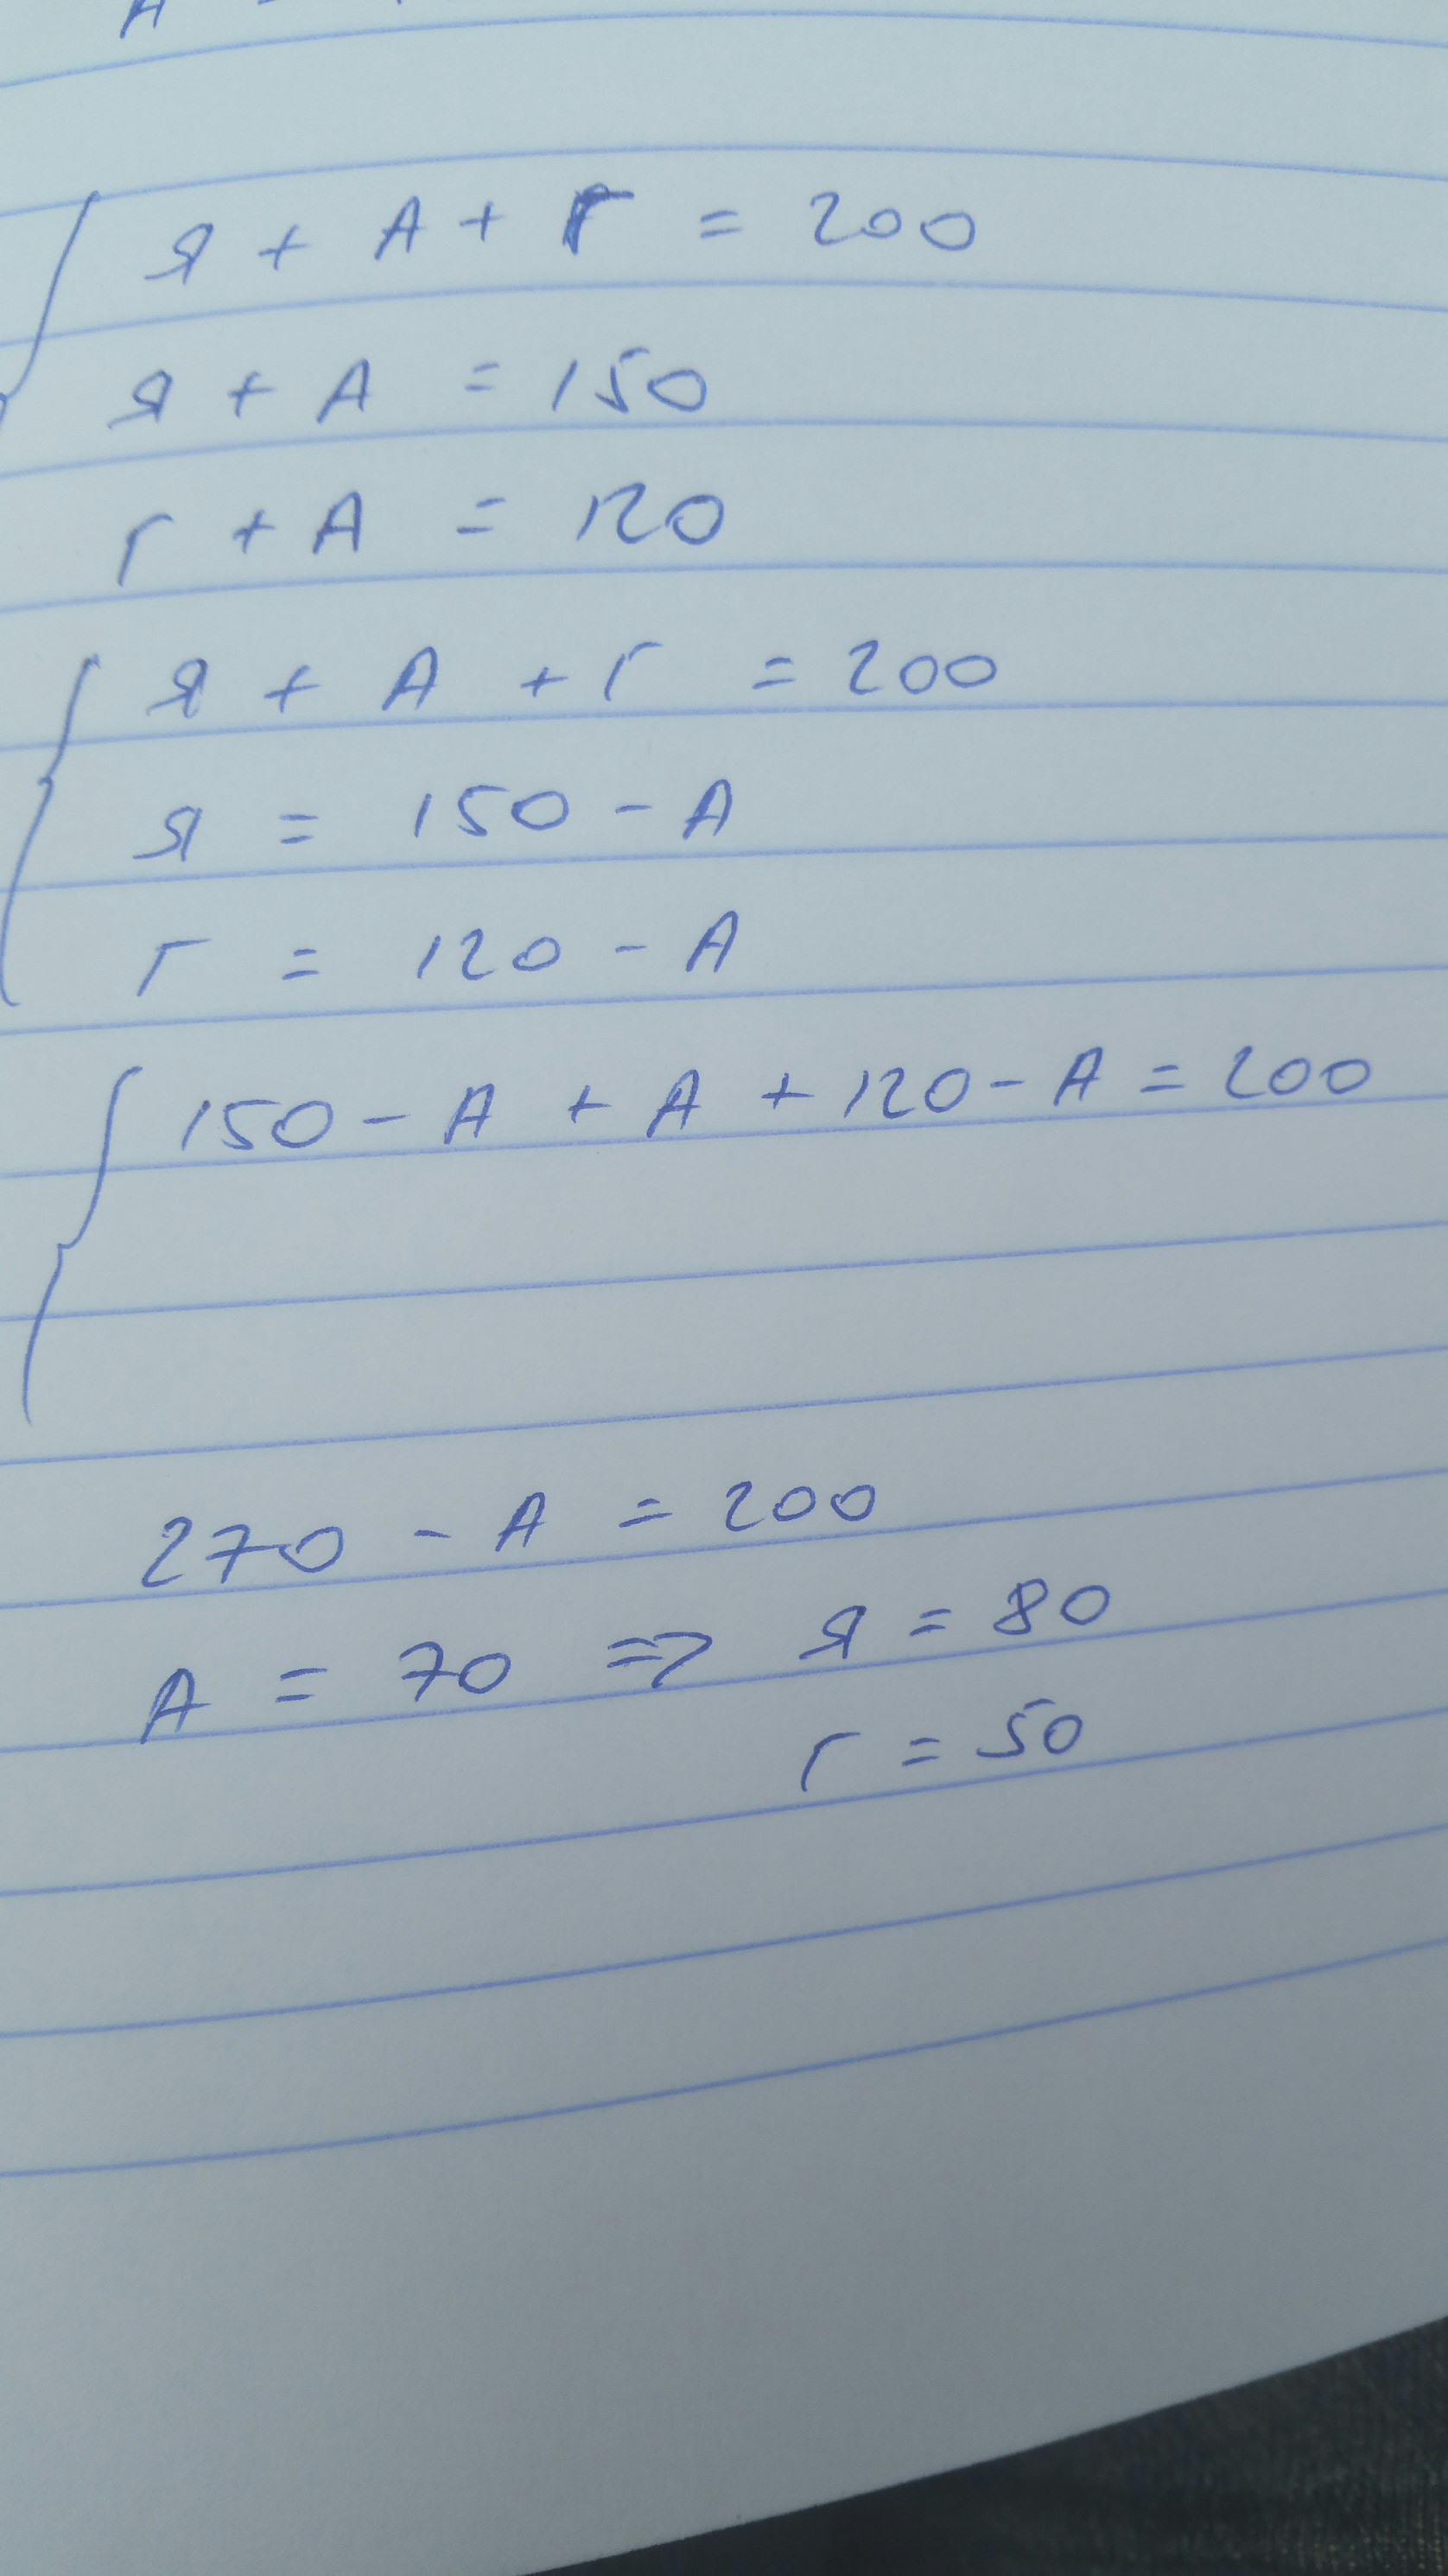 Я + А + Г = 200
Я + А = 150
Г + А = 120
Я + А + Г = 200
Я = 150 - А
Г = 120 - А
150 - А + А + 120 - А = 200
270 - А = 200
А = 70 => Я = 80
Г = 50